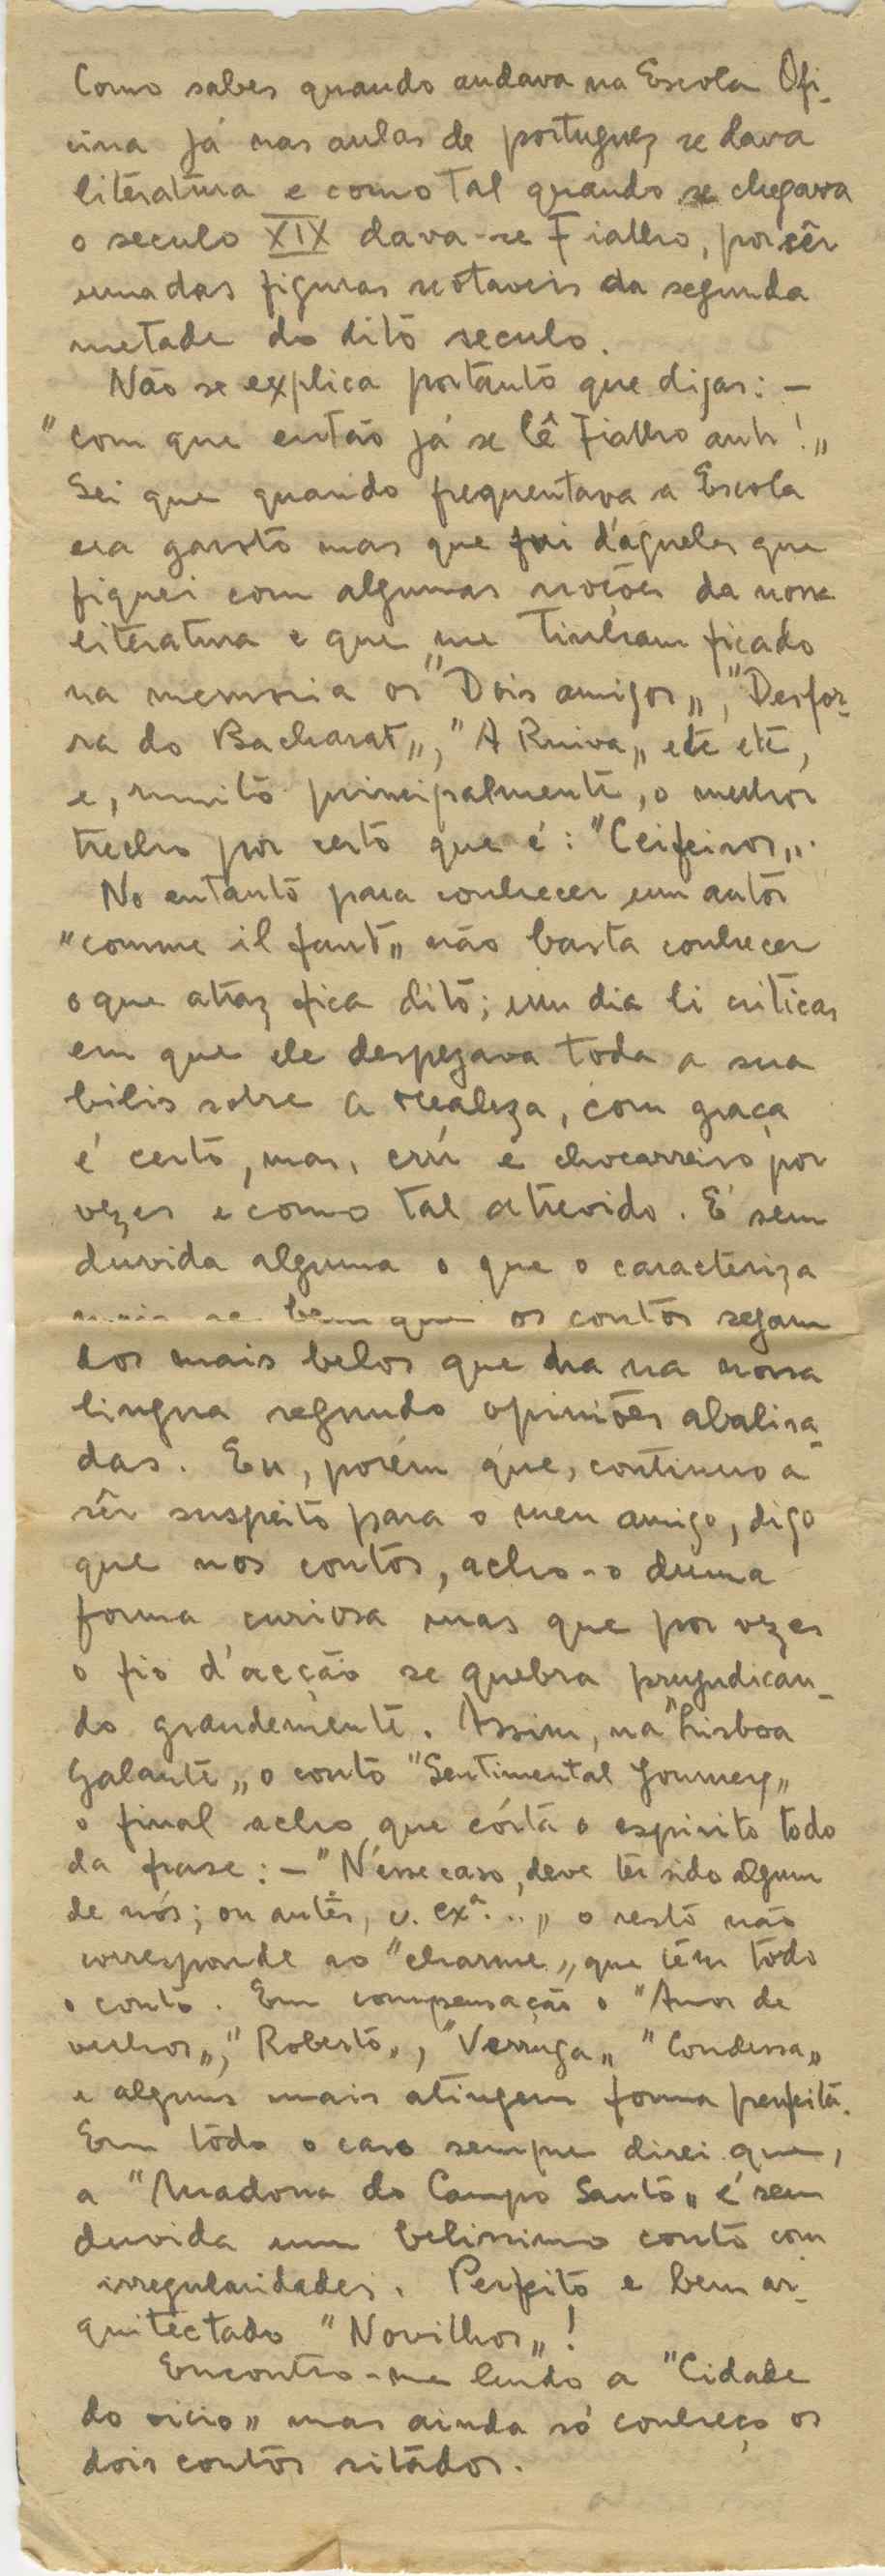 Como sabes quando andava na Escola Ofi-
cina já nas aulas de portuguez se dava
literatura e como tal quando se chegava
o seculo XIX dava-se Fialho, por sêr
uma das figuras notaveis da segunda
metade do dito seculo.
Não se explica portanto que digas: —
"com que então já se lê Fialho anh!„
Sei que quando frequentava a Escola
era garoto mas que fui d'aqueles que
fiquei com algumas noções da nossa
literatura e que me tinham ficado
na memoria os "Dois amigos„, "Desfor-
ra do Bacharat„, "A Ruiva„ etc etc,
e, muito principalmente, o melhor
trecho por certo que é: "Ceifeiros„.
No entanto para conhecer um autor
"comme il faut„ não basta conhecer
o que atraz fica dito; um dia li criticas
em que ele despezava toda a sua
bilis sobre a realeza, com graça
é certo, mas, crú e chocarreiro por
vezes e como tal atrevido. É sem
duvida alguma o que o caracteriza
mais se bem que os contos sejam
dos mais belos que ha na nossa
lingua segundo opiniões abalisa-
das. Eu, porém que, continuo a
sêr suspeito para o meu amigo, digo
que nos contos, acho-o duma
forma curiosa mas que por vezes
o fio d'acção se quebra prejudican-
do grandemente. Assim, na "Lisboa
Galante„ o conto "Sentimental Journey„
o final acho que córta o espirito todo
da frase: — "N'esse caso, deve ter sido algum
de nós; ou antes, v. exª...„ o resto não
corresponde ao "charme„ que têm todo
o conto. Em compensação o "Amor de
velhos„, "Roberto„, "Verruga„ "Condessa„
e alguns mais atingem forma perfeita.
Em tôdo o caso sempre direi que,
a "Madona do Campo Santo„ é sem
duvida um belissimo conto com
irregularidades. Perfeito e bem ar-
quitectado "Novilhos„!
Encontro-me lendo a "Cidade
do vicio„ mas ainda só conheço os
dois contos sitados.